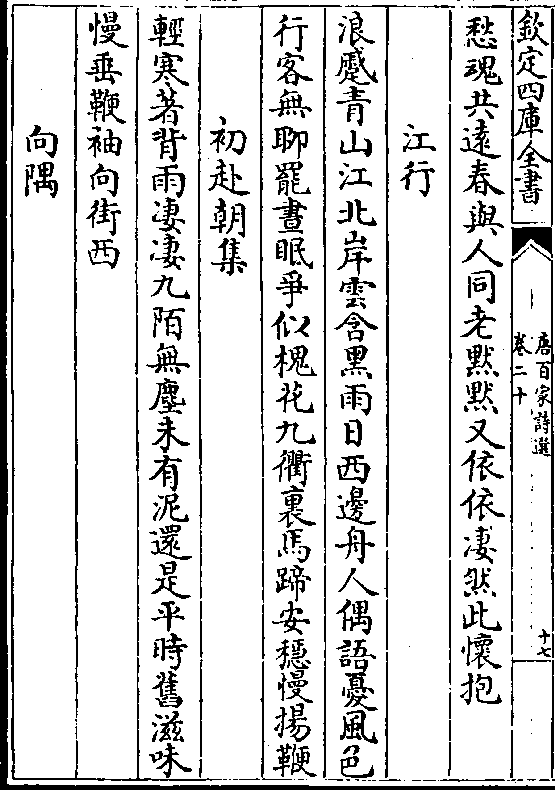 欽定四庫全書
唐百家詩選
卷二十
十七
愁魂共遠春與人同老默默又依依凄然此懷抱
江行
浪蹙青山江北岸雲含黑雨日西邊舟人偶語憂風色
行客無聊罷晝眠爭似槐花九衢裏馬蹄安穩慢揚鞭
初赴朝集
輕寒著背雨凄凄九陌無塵未有泥還是平時舊滋味
慢垂鞭袖向街西
向隅